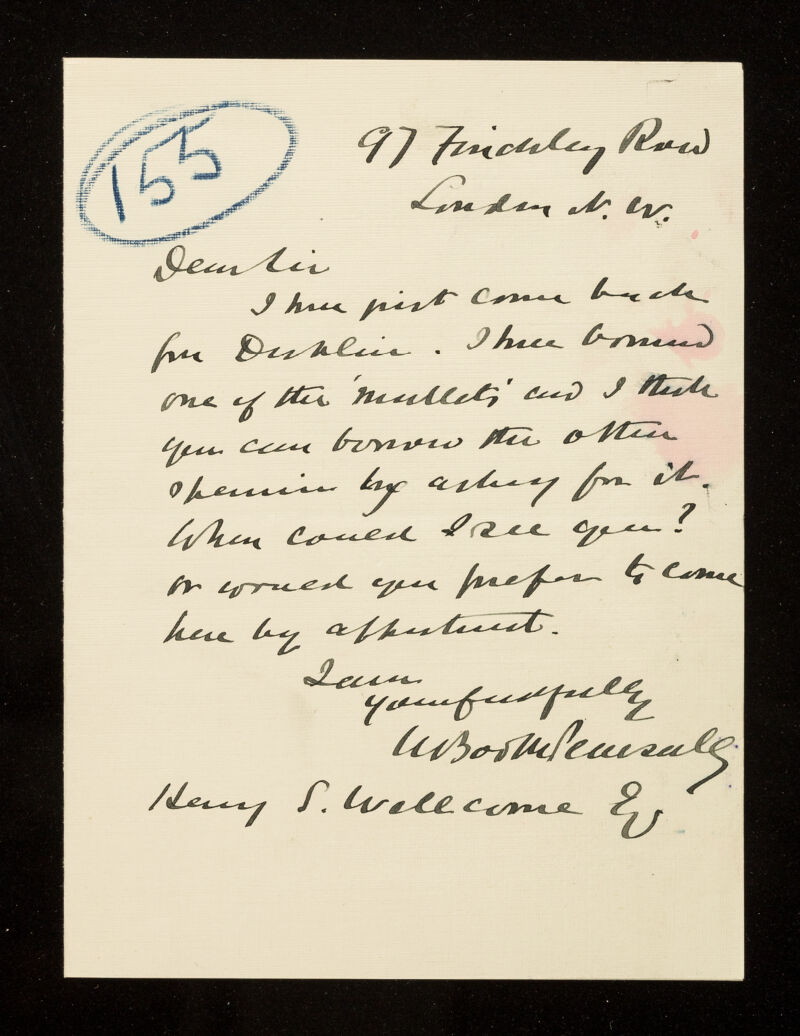 155
97 Finchley Road
London N. W.
Dear Sir
I have just come back
from Dublin. I have borrowed
one of the 'mullets' and I think
you can borrow the other
specimen by asking for it.
When could I see you?
or would you prefer to come
here by appointment.
I am
yours faithfully
W Booth Pearsall
Henry S. Wellcome Esq